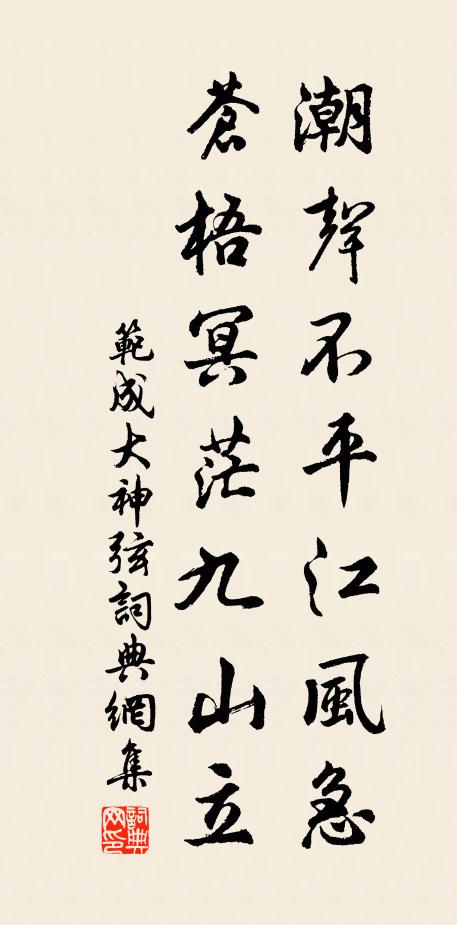 潮聲不平江風急
蒼梧冥茫九山立
範成大神弦詞典網集
詞典网印